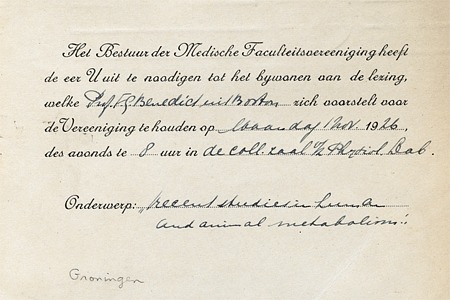 Het Bestuur der Medische Faculteitsvereeniging heeft
de eer U uit te noodigen tot het bywonen van de lezing,
welke Prof. F.G. Benedict uit Boston zich voorstelt voor
de Vereeniging te houden op Maandag 1 Nov. 1926,
des avonds te 8 uur in de coll. zaal v/h Physiol Lab.
Onderwerp: "recent studies in human
and animal metabolism".
Groningen